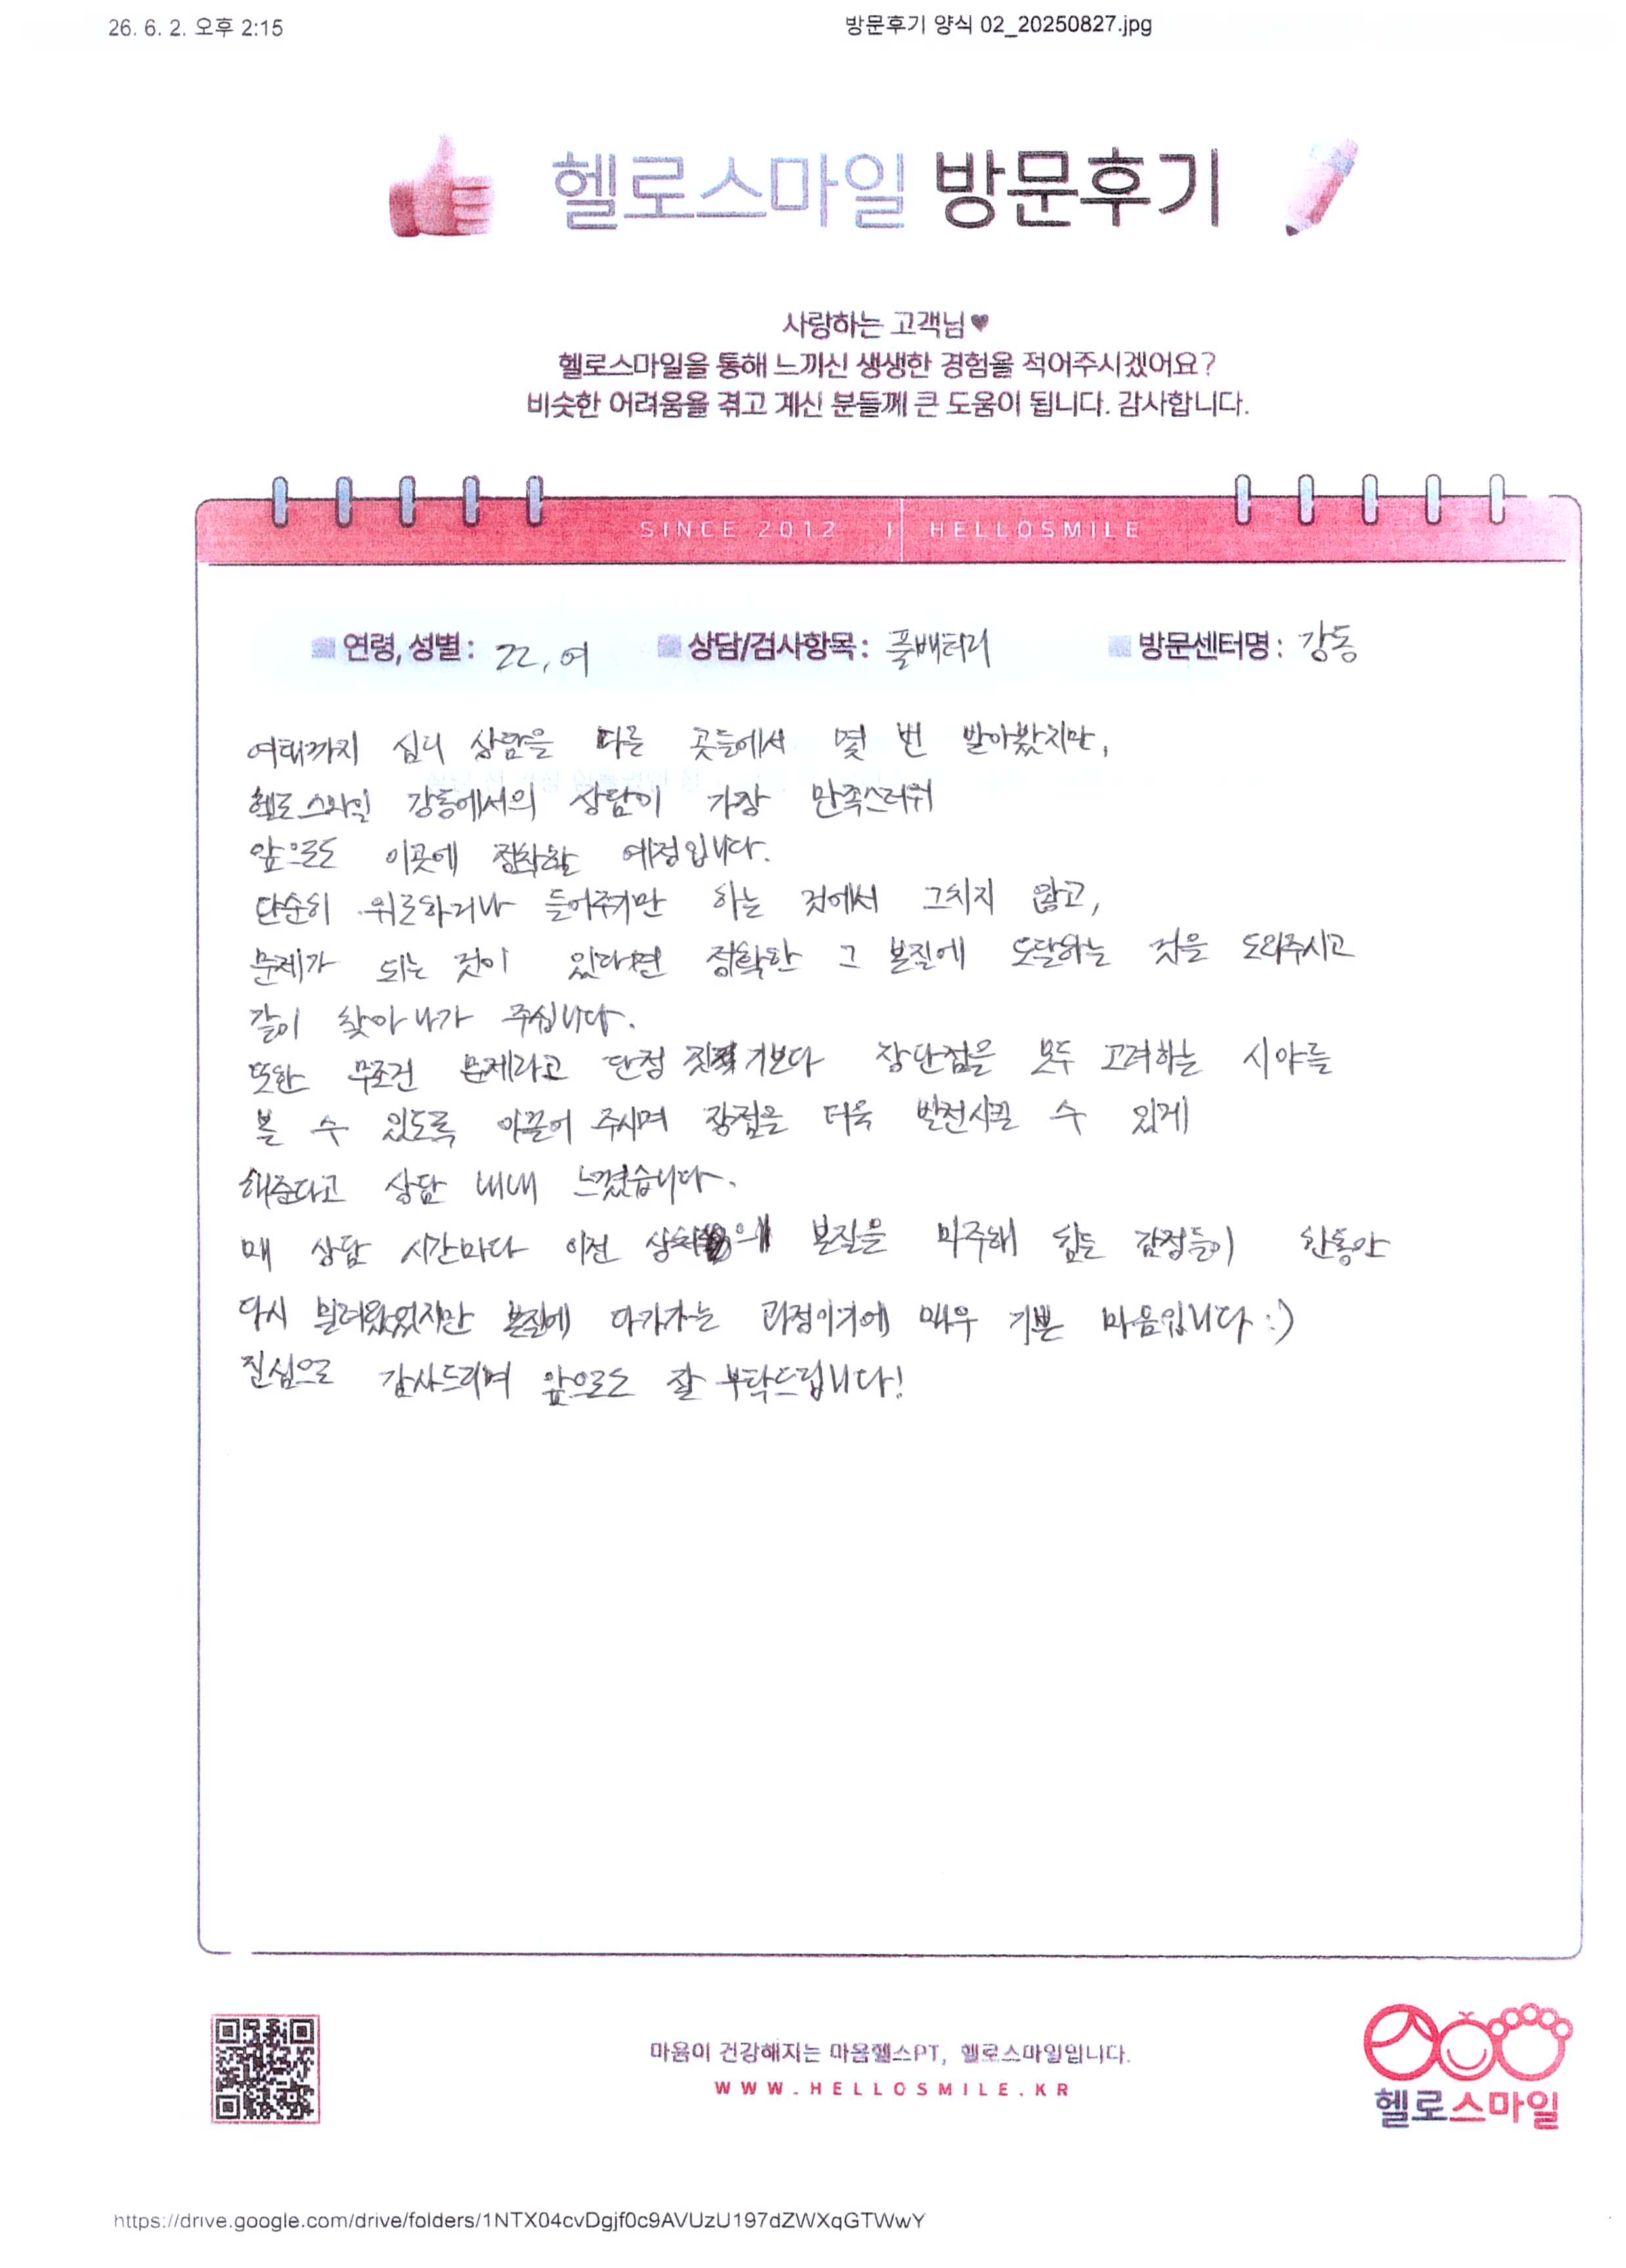 26. 6. 2. 오후 2:15
방문후기 양식 02_20250827.jpg
헬로스마일 방문후기
사랑하는 고객님♥
헬로스마일을 통해 느끼신 생생한 경험을 적어주시겠어요?
비슷한 어려움을 겪고 계신 분들께 큰 도움이 됩니다. 감사합니다.
SINCE 2012 | HELLOSMILE
연령, 성별 : 22, 여 상담/검사항목 : 풀배터리 방문센터명 : 강동
여태까지 심리 상담을 다른 곳들에서 몇 번 받아봤지만,
헬로스마일 강동에서의 상담이 가장 만족스러워
앞으로도 이곳에 정착할 예정입니다.
단순히 위로하거나 들어주기만 하는 것에서 그치지 않고,
문제가 되는 것이 있다면 정확한 그 본질에 도달하는 것을 도와주시고
같이 찾아 나가 주십니다.
또한 무조건 문제라고 단정 짓기보다 장단점을 모두 고려하는 시야를
볼 수 있도록 이끌어 주시며 장점을 더욱 발전시킬 수 있게
해준다고 상담 내내 느꼈습니다.
매 상담 시간마다 이전 상처의 본질을 마주해 힘든 감정들이 한동안
다시 밀려왔었지만 본질에 다가가는 과정이기에 매우 기쁜 마음입니다 :)
진심으로 감사드리며 앞으로도 잘 부탁드립니다!
마음이 건강해지는 마음헬스PT, 헬로스마일입니다.
WWW.HELLOSMILE.KR
헬로스마일
https://drive.google.com/drive/folders/1NTX04cvDgjf0c9AVUzU197dZWXqGTWwY